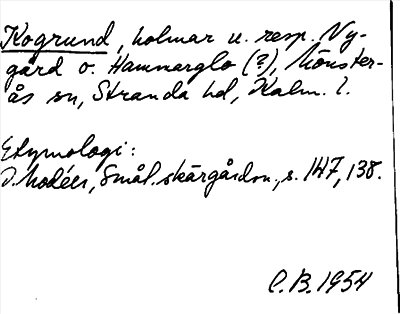 Kogrund, holmar u. resp. Ny-
gård o. Hammarglo (?), Mönster-
ås sn, Stranda hd, Kalm. l.
Etymologi:
I. Modéer, Smål. skärgårdsn., s. 147, 138.
C.B. 1954